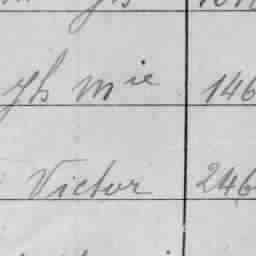 Jh mie 146
Victor 246